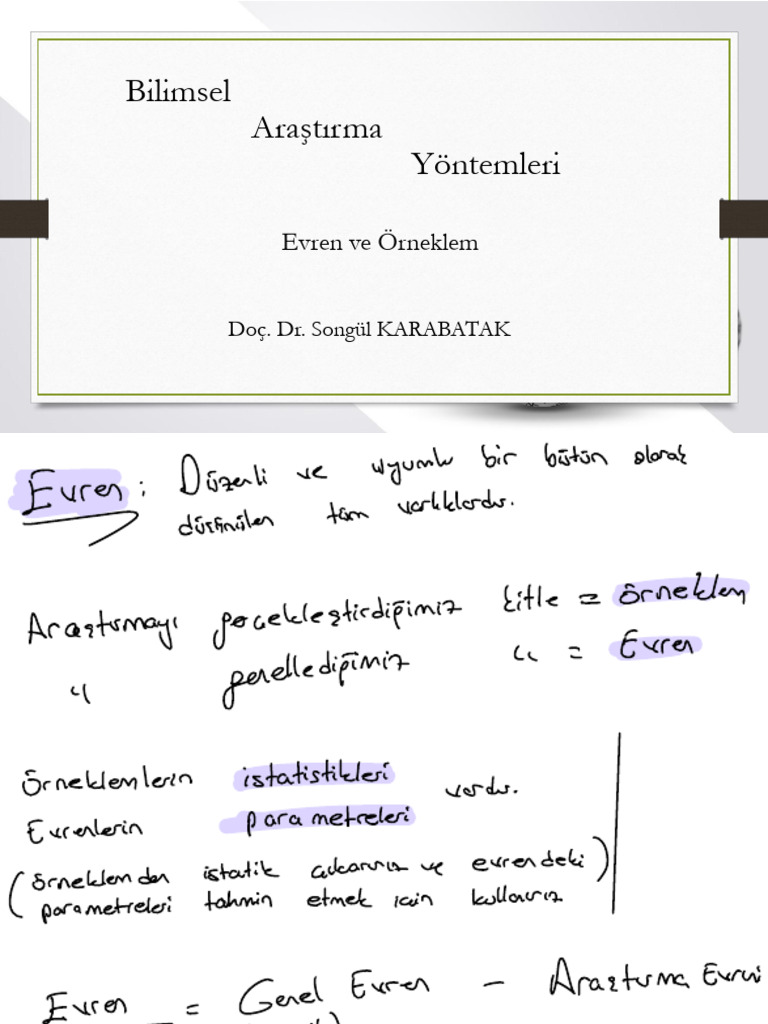 Bilimsel
Araştırma
Yöntemleri
Evren ve Örneklem
Doç. Dr. Songül KARABATAK
Evren : Düzenli ve uyumlu bir bütün olarak
düşünülen tüm varlıklardır.
Araştırmayı gerçekleştirdiğimiz kitle = örneklem
" genellediğimiz " = Evren
Örneklemlerin istatistikleri vardır.
Evrenlerin parametreleri
(örneklemden istatik çıkarırız ve evrendeki)
parametreleri tahmin etmek için kullanırız
Evren = Genel Evren - Araştırma Evreni